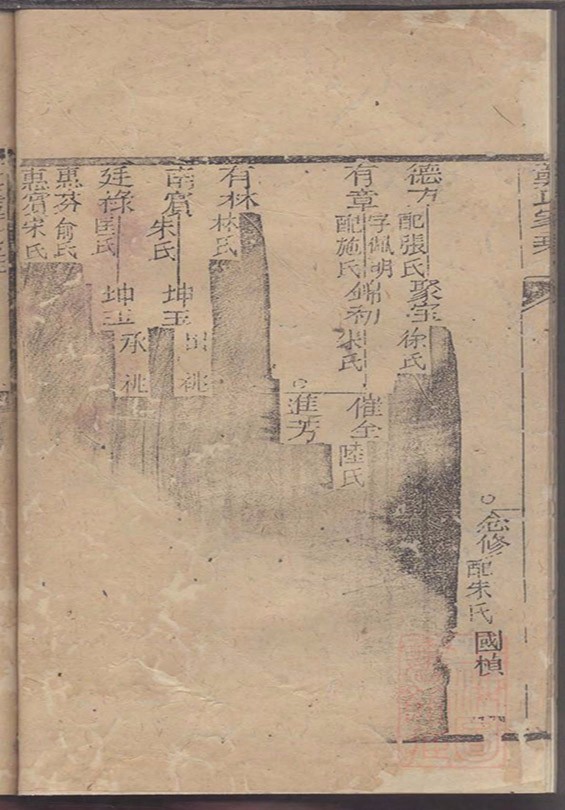 念修 配朱氏 國楨
德 配張氏 聚宝 徐氏
有章 字佩明 配施氏 錦初 朱氏
催全 陸氏
進芳
有林 林氏
南賓 朱氏 坤玉 祧
廷祿 匡氏 坤玉 承祧
惠芬 俞氏
惠賓 宋氏